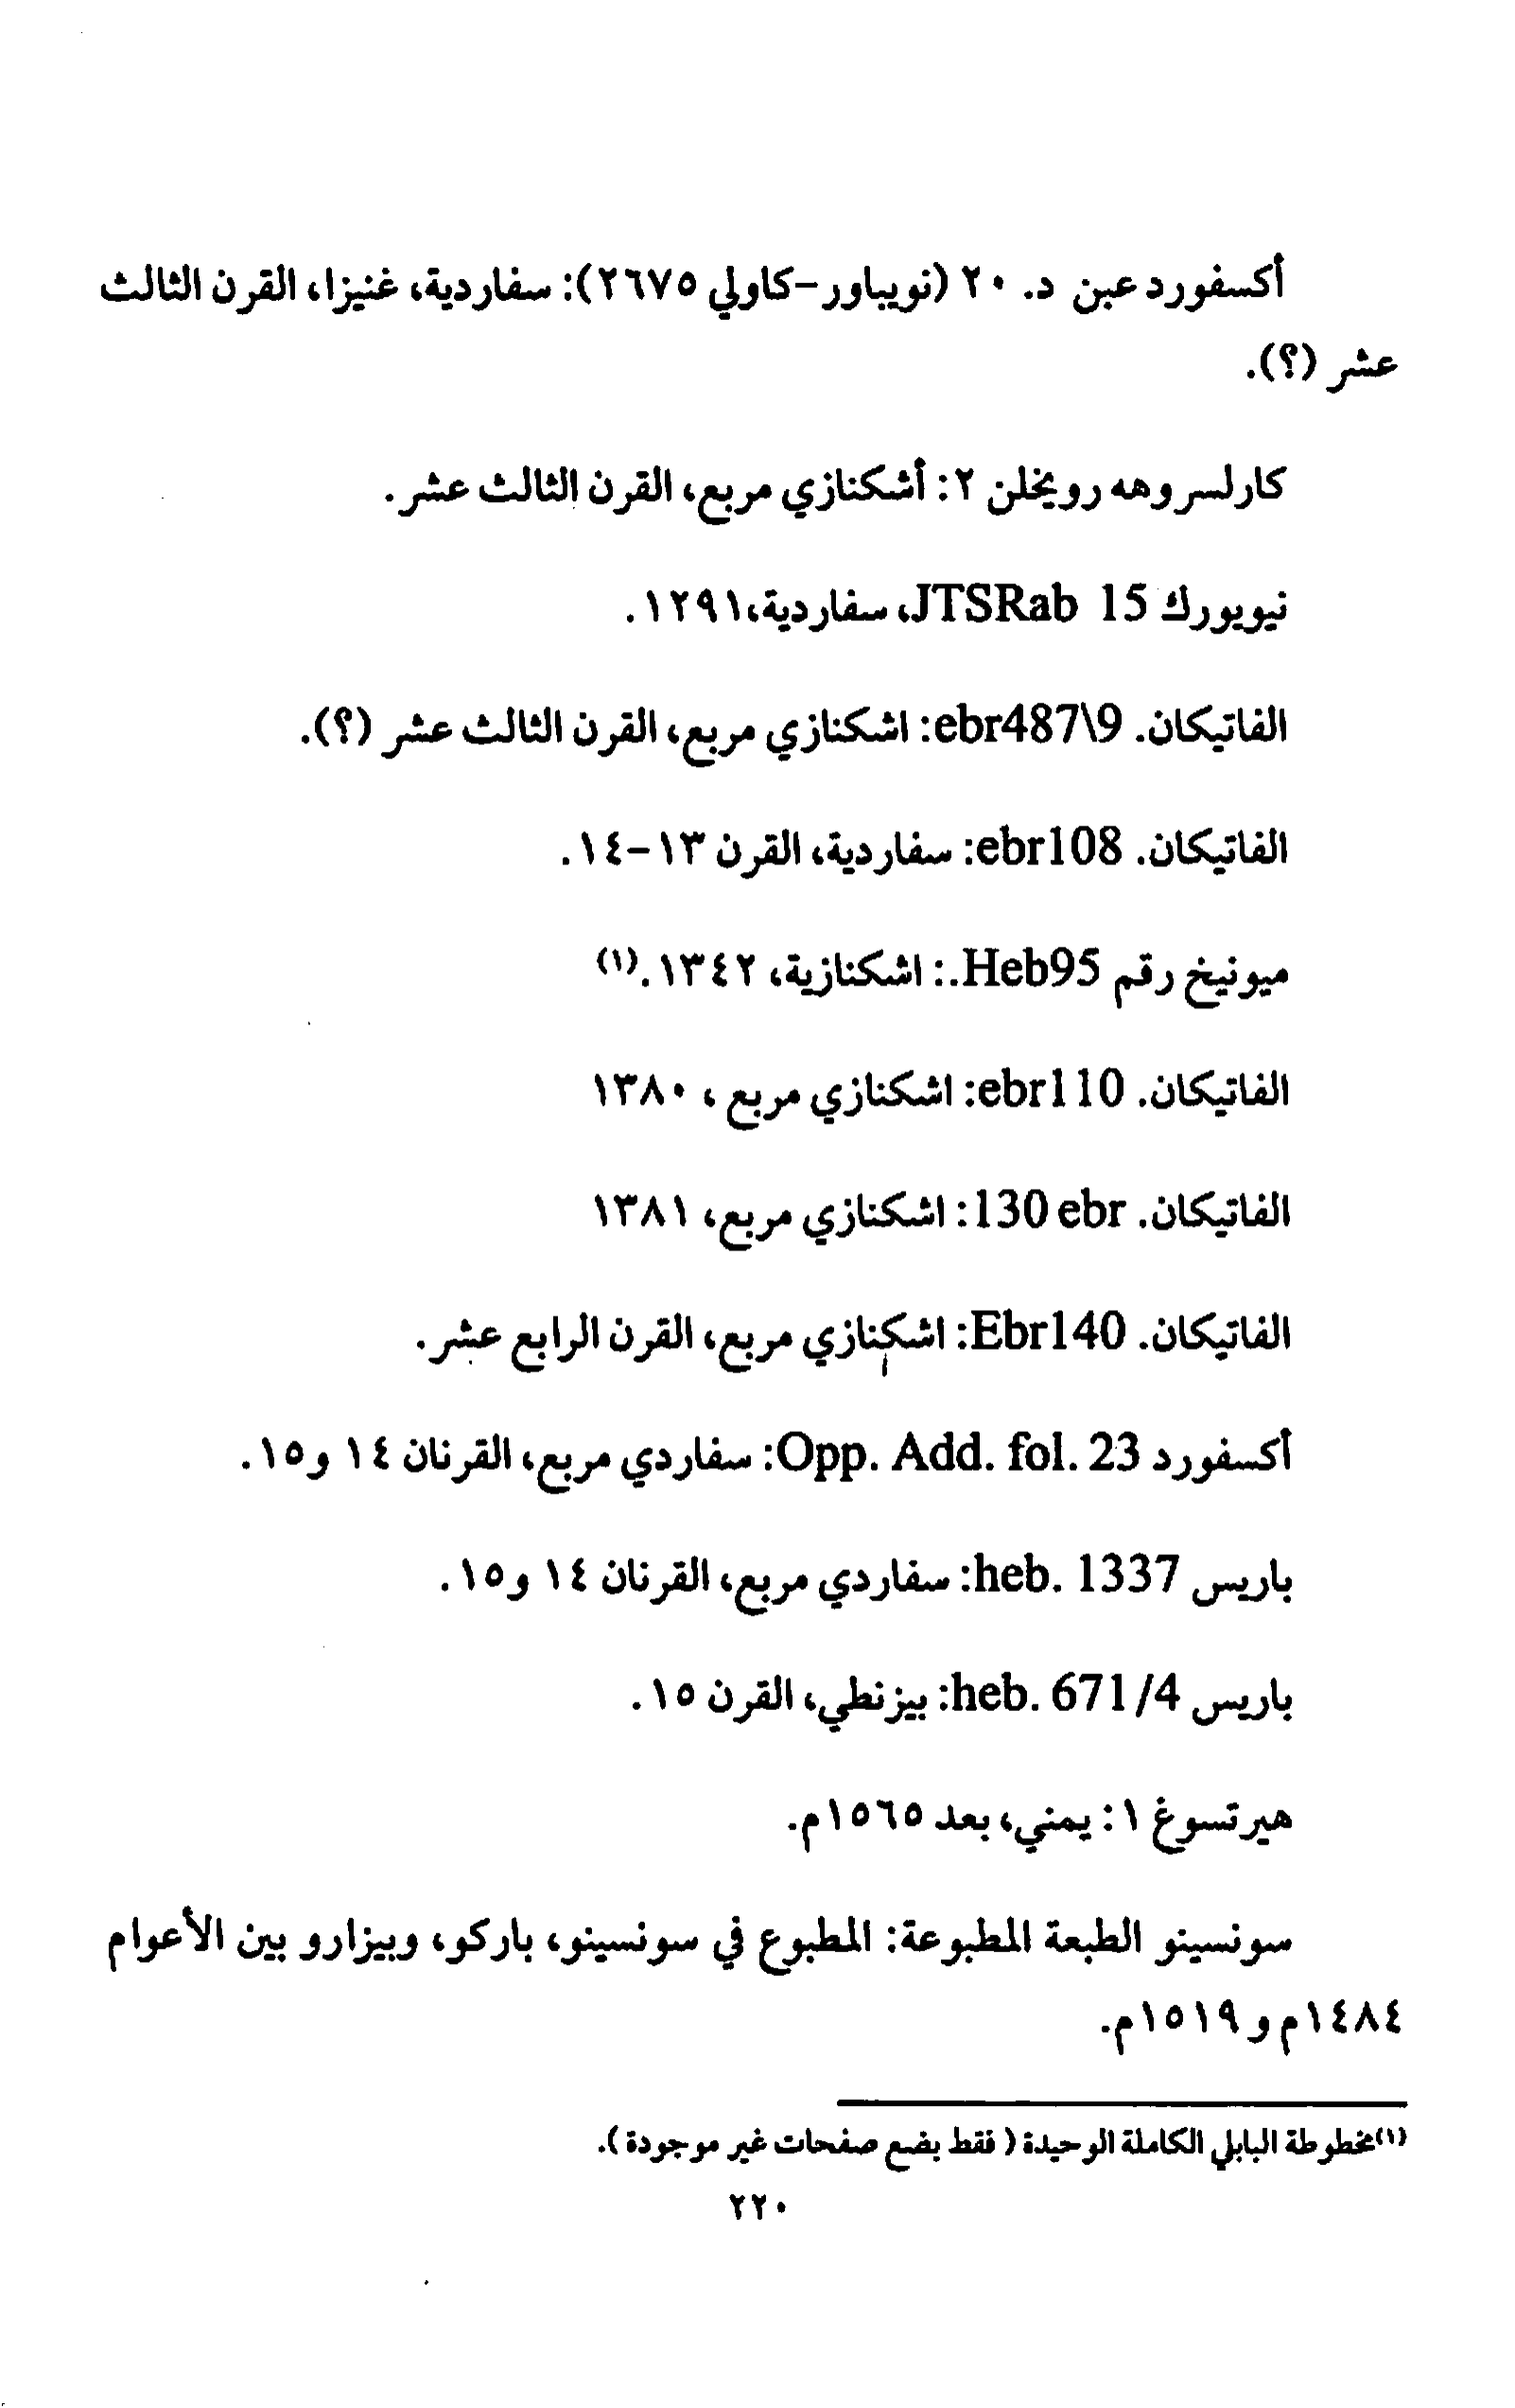 أكسفورد عبن د. ٢٠ (نويباور-كاولي ٢٦٧٥): سفاردية، غنيزا، القرن الثالث
عشر (؟).
كارلسروهه رويخلن ٢: أشكنازي مربع، القرن الثالث عشر.
نيويورك JTSRab 15، سفاردية،١٢٩١.
الفاتيكان. ebr487\9: اشكنازي مربع، القرن الثالث عشر (؟).
الفاتيكان. ebr108: سفاردية، القرن ١٣-١٤.
ميونيخ رقم Heb95.: اشكنازية، ١٣٤٢.(١)
الفاتيكان. ebr110: اشكنازي مربع ، ١٣٨٠
الفاتيكان. 130 ebr: اشكنازي مربع، ١٣٨١
الفاتيكان. Ebr140: اشكنازي مربع، القرن الرابع عشر.
أكسفورد Opp. Add. fol. 23: سفاردي مربع، القرنان ١٤ و١٥.
باريس heb. 1337: سفاردي مربع، القرنان ١٤ و١٥.
باريس heb. 671/4: بيزنطي، القرن ١٥.
هيرتسوغ ١: يمني، بعد ١٥٦٥م.
سونسينو الطبعة المطبوعة: المطبوع في سونسينو، باركو، وبيزارو بين الأعوام
١٤٨٤م و ١٥١٩م.
(١)مخطوطة البابلي الكاملة الوحيدة ( فقط بضع صفحات غير موجودة ).
٢٢٠